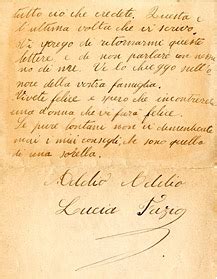 tutto ciò che credete. Questa è
l'ultima volta che vi scrivo.
Vi prego di ritornarmi queste
lettere e di non parlare con nessu
no di me. Ve lo chieggo sull'o
nore della vostra famiglia.
Vivete felice e spero che incontrerete
una donna che vi farà felice.
Se pure lontano non vi dimenticate
mai i miei consigli, che sono quelli
di una sorella.
Addio Addio
Lucia Fazio